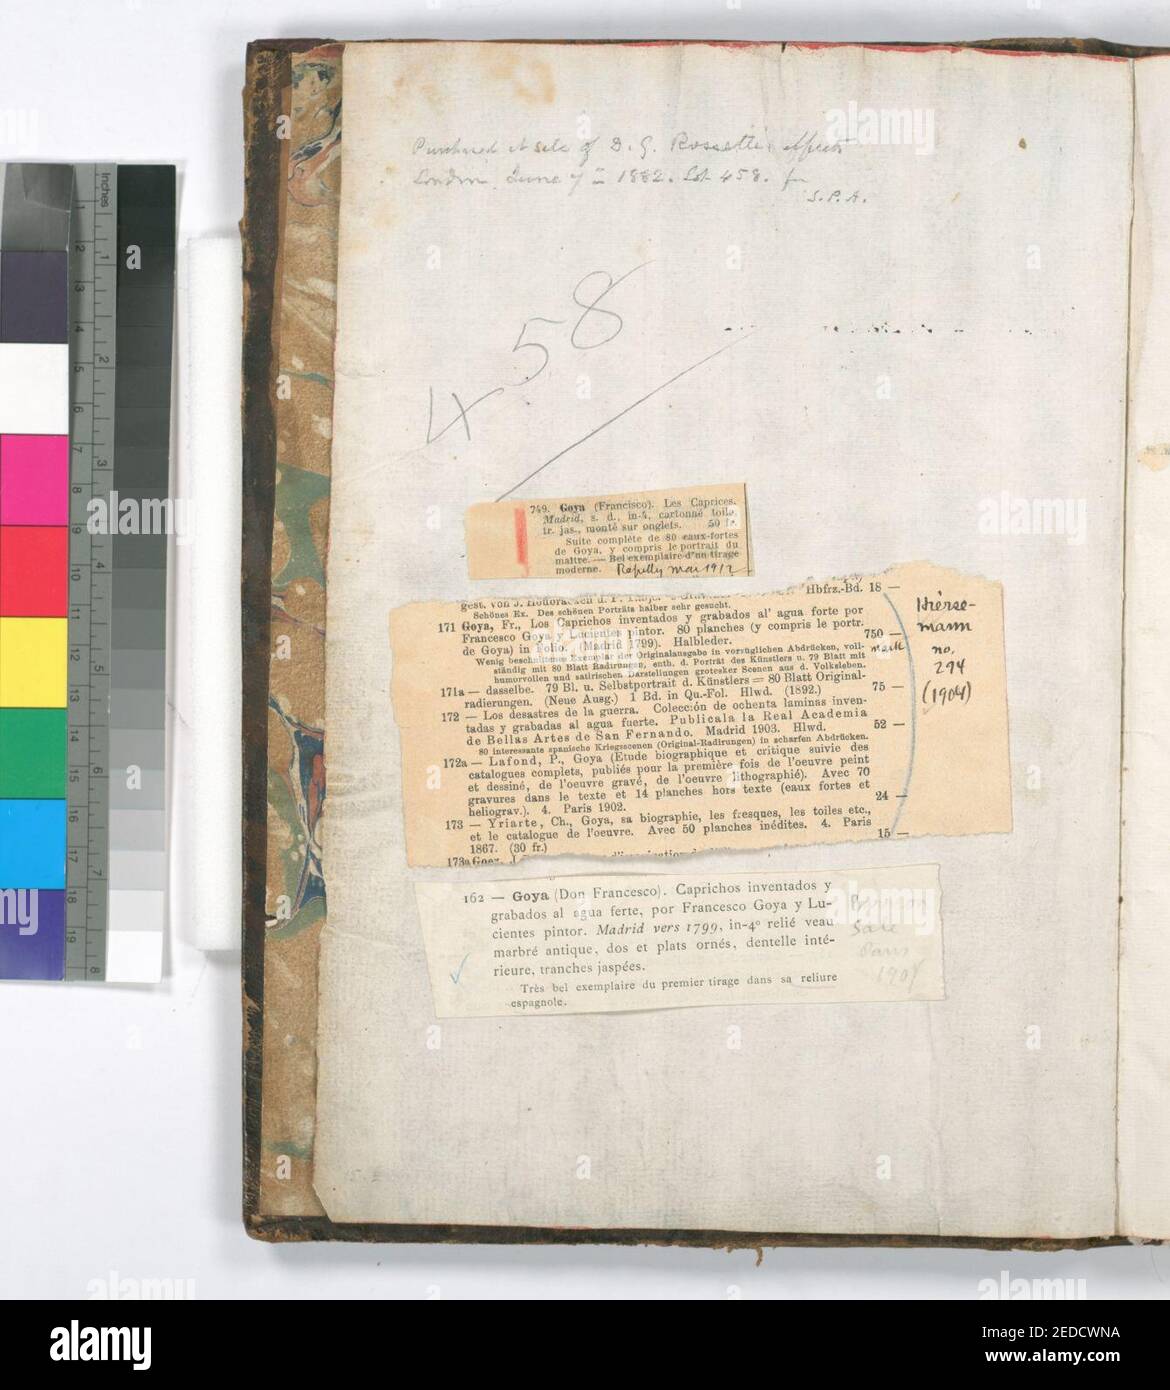 Purchased at sale of D. G. Rossetti effects
London, June 7 1882. Lot 458. for
S.P.A.
458
749. Goya (Francisco). Les Caprices.
Madrid, s. d., in-4, cartonné toile,
tr. jas., monté sur onglets. 50 fr.
Suite complète de 80 eaux-fortes
de Goya, y compris le portrait du
maître. — Bel exemplaire d'un tirage
moderne. Rapilly Mai 1912
Hbfrz.-Bd. 18 —
Schönes Ex. Des schönen Porträts halber sehr gesucht.
171 Goya, Fr., Los Caprichos inventados y grabados al' agua forte por
Francesco Goya y Lucientes pintor. 80 planches (y compris le portr.
de Goya) in Folio. (Madrid 1799). Halbleder. 750 —
mark
Wenig beschnittenes Exemplar der Originalausgabe in vorzüglichen Abdrücken, voll-
ständig mit 80 Blatt Radirungen, enth. d. Porträt des Künstlers u. 79 Blatt mit
humorvollen und satirischen Darstellungen grotesker Scenen aus d. Volksleben.
171a — dasselbe. 79 Bl. u. Selbstportrait d. Künstlers = 80 Blatt Original-
radierungen. (Neue Ausg.) 1 Bd. in Qu.-Fol. Hlwd. (1892.) 75 —
172 — Los desastres de la guerra. Colección de ochenta laminas inven-
tadas y grabadas al agua fuerte. Publicala la Real Academia
de Bellas Artes de San Fernando. Madrid 1903. Hlwd. 52 —
80 interessante spanische Kriegsscenen (Original-Radirungen) in scharfen Abdrücken.
172a — Lafond, P., Goya (Etude biographique et critique suivie des
catalogues complets, publiés pour la première fois de l'oeuvre peint
et dessiné, de l'oeuvre gravé, de l'oeuvre lithographié). Avec 70
gravures dans le texte et 14 planches hors texte (eaux fortes et
heliograv.). 4. Paris 1902. 24 —
173 — Yriarte, Ch., Goya, sa biographie, les fresques, les toiles etc.,
et le catalogue de l'oeuvre. Avec 50 planches inédites. 4. Paris
1867. (30 fr.) 15 —
Hierse-
mann
no.
294
(1904)
162 — Goya (Don Francesco). Caprichos inventados y
grabados al agua ferte, por Francesco Goya y Lu-
cientes pintor. Madrid vers 1799, in-4º relié veau
marbré antique, dos et plats ornés, dentelle inté-
rieure, tranches jaspées.
Très bel exemplaire du premier tirage dans sa reliure
espagnole.
Sale
Paris
1907
Inches
1 2 3 4 5 6 7 8
alamy
Image ID: 2EDCWNA
www.alamy.com